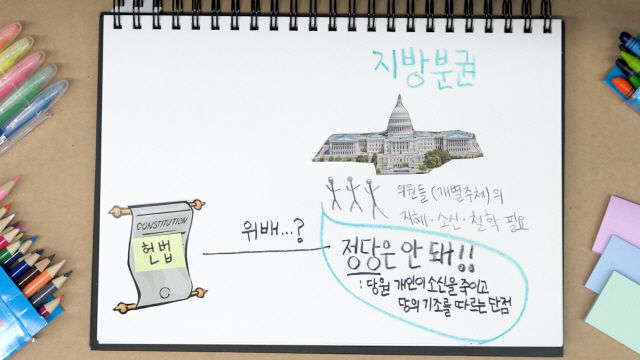 지방분권
의원들 (개별주체)의
지혜·소신·철학 필요
CONSTITUTION
헌법
위배...?
정당은 안 돼!!
: 당원 개인의 소신을 죽이고
당의 기조를 따르는 단점